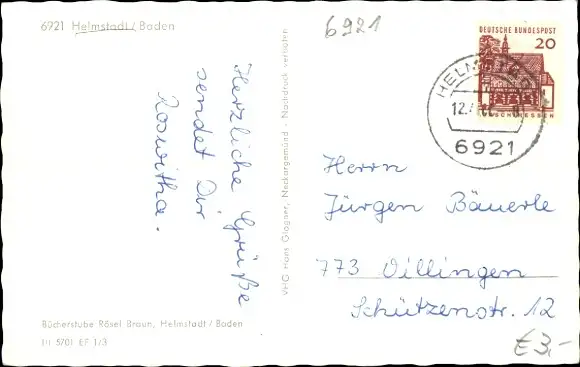 6921 Helmstadt / Baden
6921
DEUTSCHE BUNDESPOST
20
HELMSTADT
12.
6921
Herzliche Grüße
sendet Dir
Roswitha.
VHG Hans Glogner, Neckargemünd - Nachdruck verboten
Herrn
Jürgen Bäuerle
773 Villingen
Schützenstr. 12
Bücherstube Rösel Braun, Helmstadt / Baden
5701 EF 1/3
€ 3,-